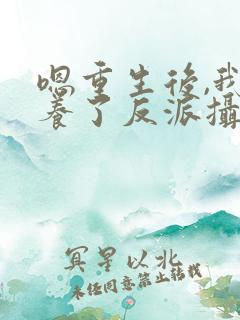 嗯重生後,我
養了反派攝
冥星以北
未经同意禁止转载